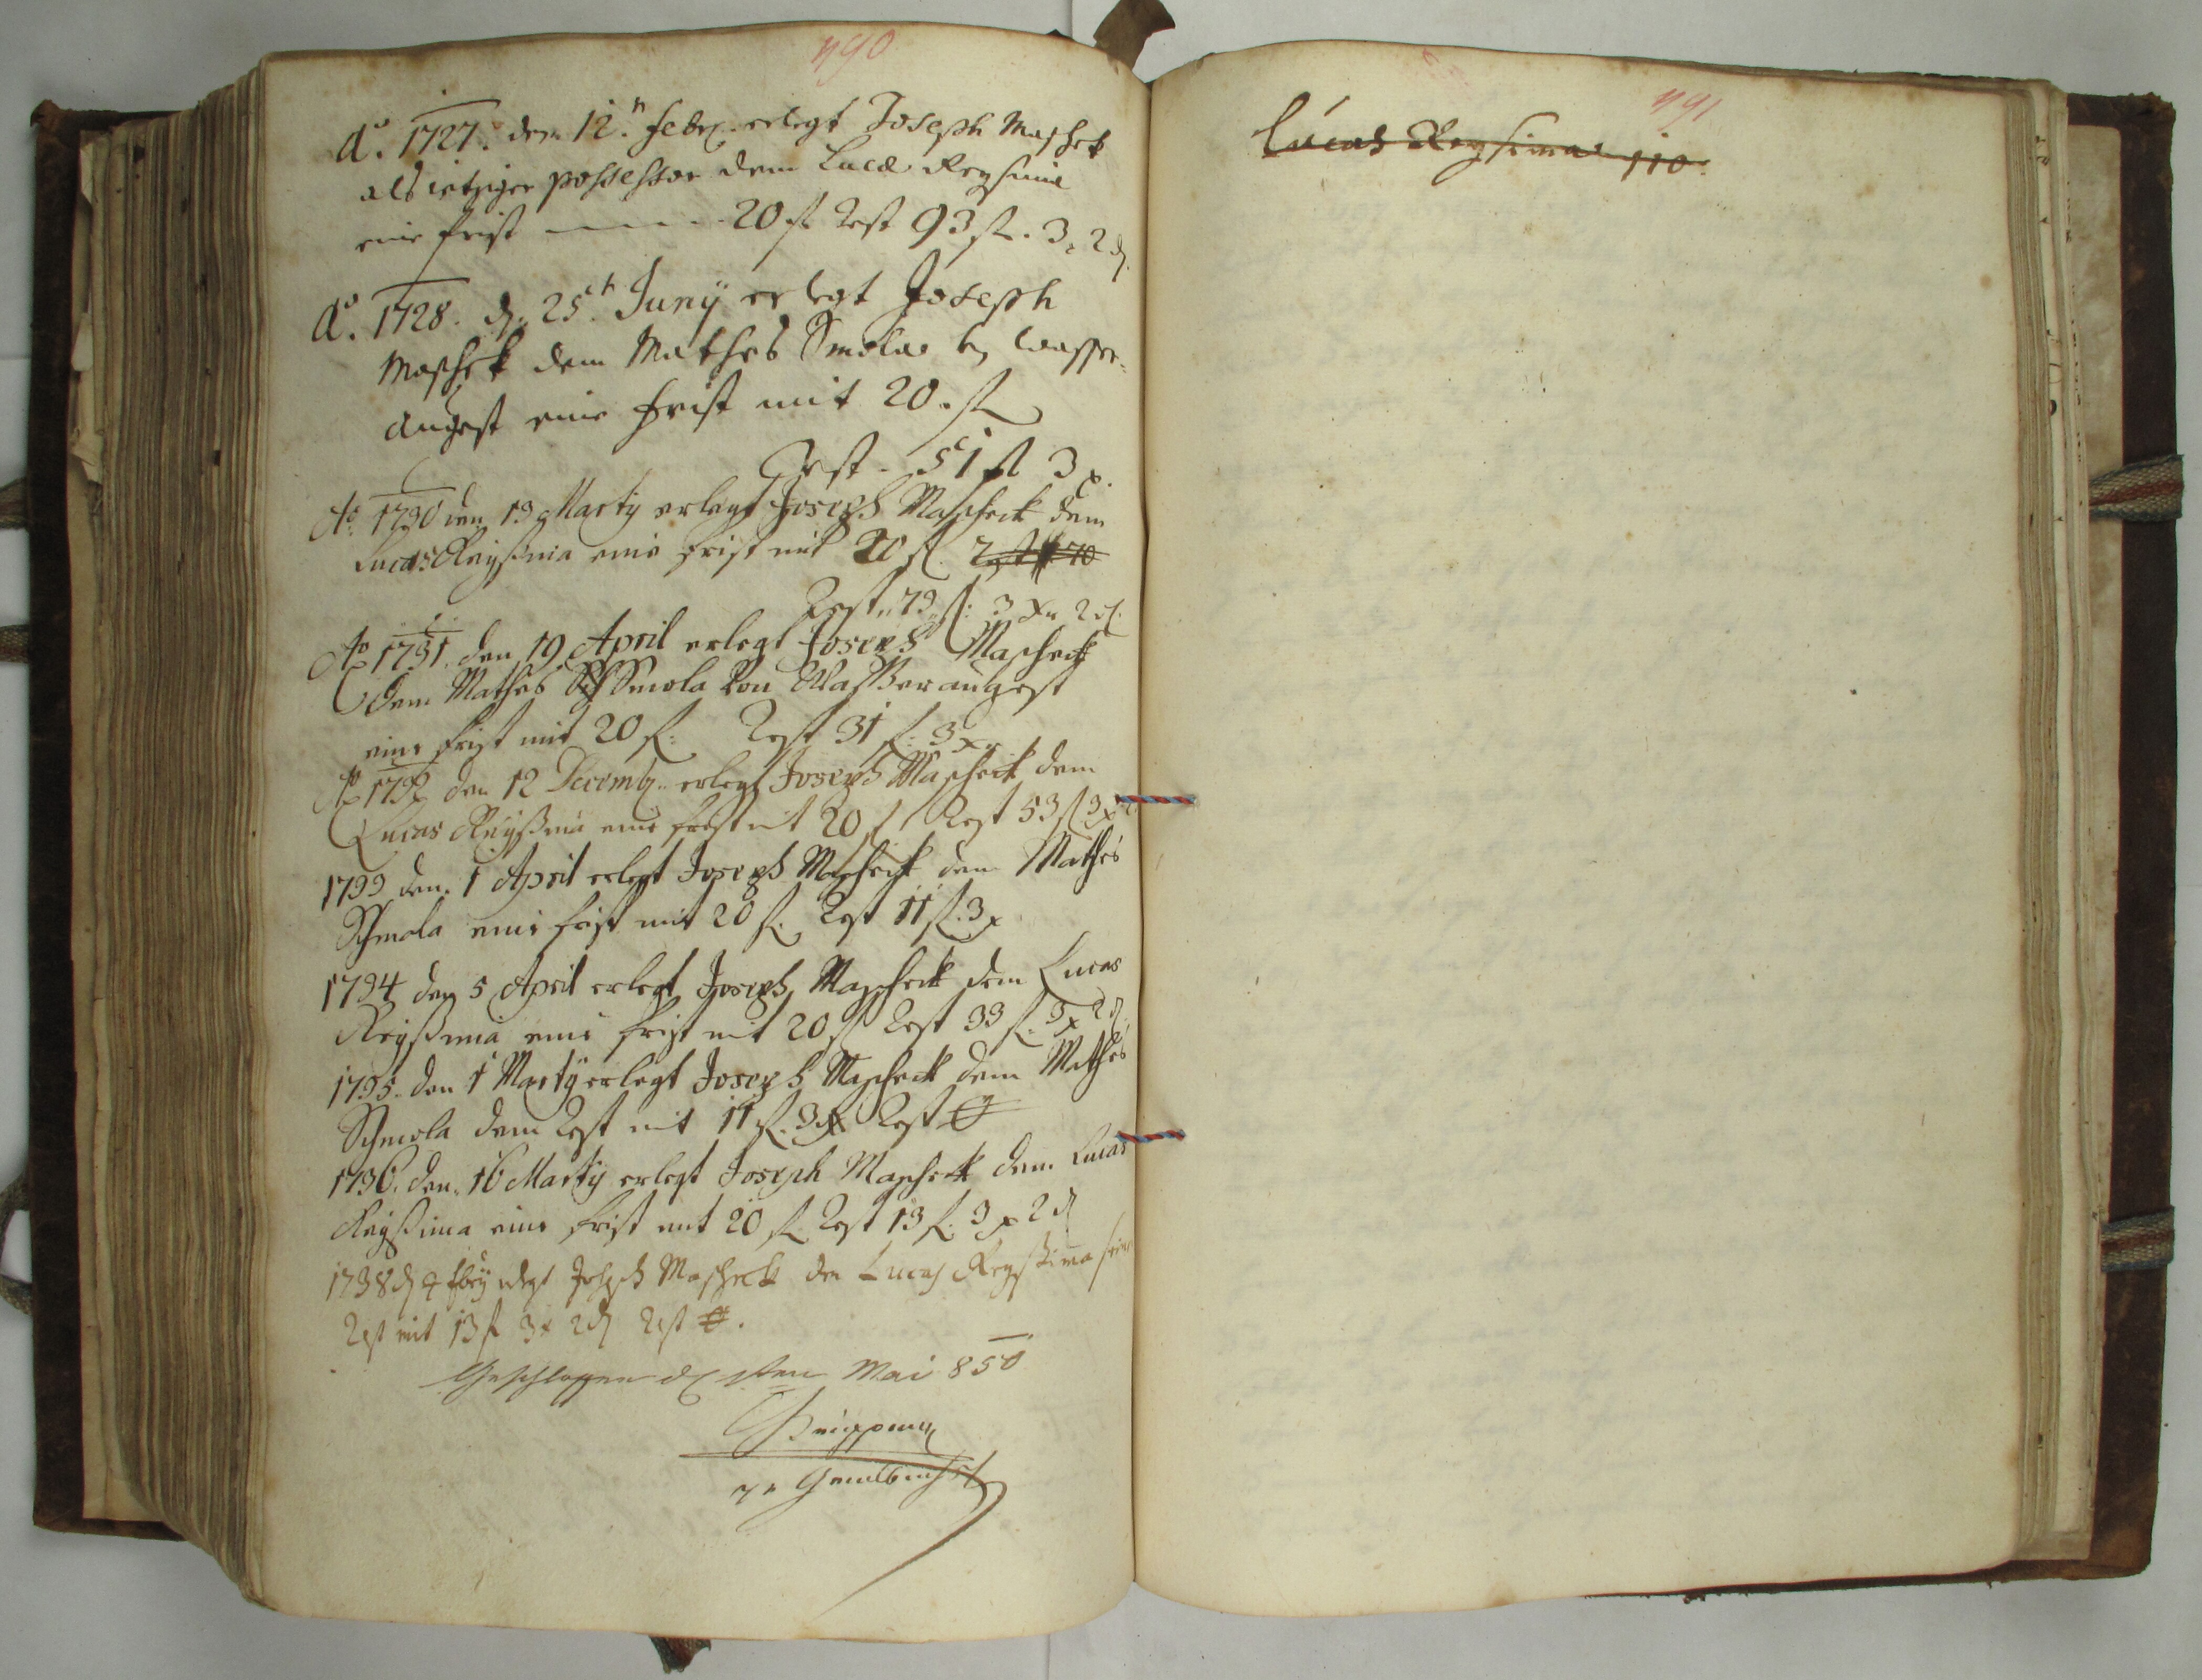 490
Aº. 1727. den 12.ⁿ Febr. erlegt Joseph Maschek
als ietziger possessor dem Lucæ Reysima
eine frist — — — 20 fl Rest 93 fl. 3 x 2 ₰
Aº. 1728. d. 25.ᵗ Juny erlegt Joseph
Maschek dem Mathes Smola bey Wasser
augest eine frist mit 20. fl
Rest. 51 fl 3 x.
Aº. 1730 den 13 Marty erlegt Joseph Mascheck dem
Lucas Reyßma eine frist mit 20 fl. Rest 70
Rest. 73 fl: 3 x 2 ₰.
Aº 1731. den 19 April erlegt Joseph Mascheck
dem Mathes Smola von Waßeraugest
eine frist mit 20 fl: Rest 31 fl: 3 x
Aº 1732 den 12 Decemb. erlegt Joseph Mascheck dem
Lucas Reyßma eine frist mit 20 fl Rest 53 fl 3 x
1733 den. 1 April erlegt Joseph Mascheck dem Mathes
Schmola eine frist mit 20 fl. Rest 11 fl. 3 x
1734 den 5 April erlegt Joseph Mascheck dem Lucas
Reyßma eine frist mit 20 fl Rest 33 fl. 3 x 2 ₰
1735. den 1 Marty erlegt Joseph Mascheck dem Mathes
Schmola dem Rest mit 11 fl. 3 x Rest
1736. den. 16 Marty erlegt Joseph Mascheck dem Lucas
Reyßima eine frist mit 20 fl. Rest 13 fl. 3 x 2 ₰
1738 d 4 erlegt Joseph Mascheck den Lucas Reyßima sein
Rest mit 13 fl 3 x 2 ₰ Rest
Geschlossen den Mai 850
491
Lucas Reysima 110.